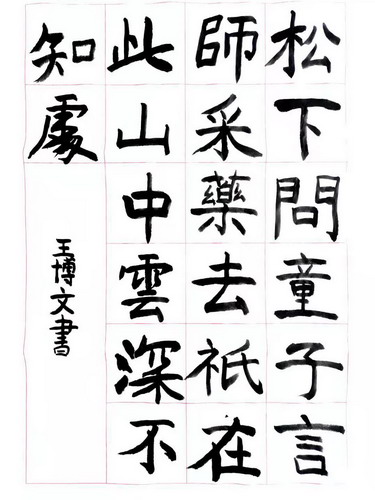 松下問童子言
師采藥去祇在
此山中雲深不
知處
王博文書